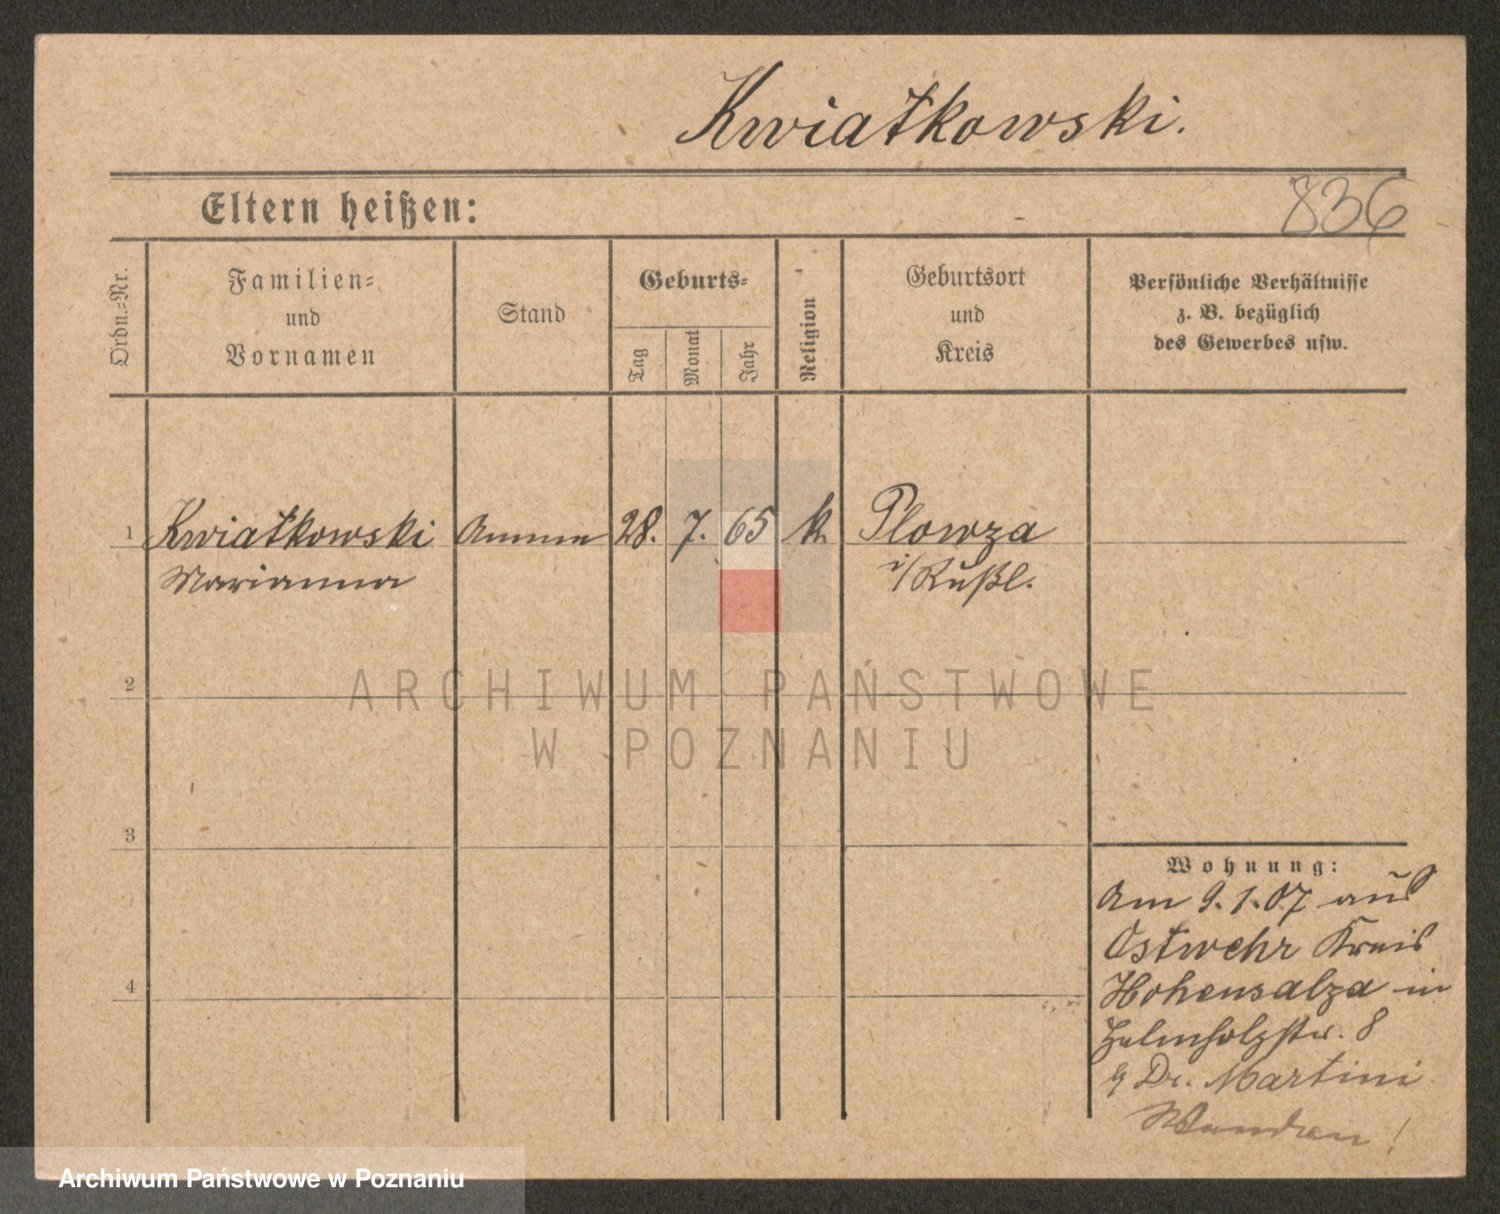 Kwiatkowski.
Eltern heißen:
836
Ordn.-Nr.
Familien-
und
Vornamen
Stand
Geburts-
Tag
Monat
Jahr
Religion
Geburtsort
und
Kreis
Persönliche Verhältnisse
z. B. bezüglich
des Gewerbes usw.
1 Kwiatkowski Amme 28. 7. 65 k. Plowza
Marianna i/Rußl.
2
ARCHIWUM PAŃSTWOWE
W POZNANIU
3
Wohnung:
Am 9.1.07 aus
Ostwehr Kreis
Hohensalza in
Helmholzstr. 8
b Dr. Martini
4
Archiwum Państwowe w Poznaniu